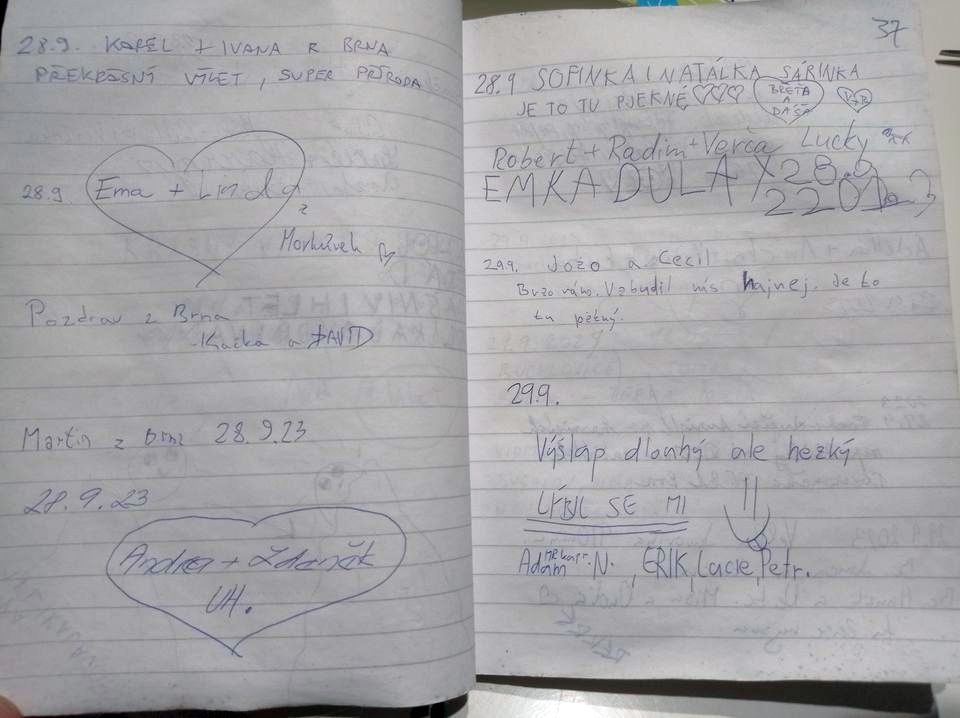 28.9. KAREL + IVANA Z BRNA
PŘEKRÁSNÝ VÝLET, SUPER PŘÍRODA
28.9. Ema + Linda
z
Morkůvek
Pozdrav z Brna
-Kačka a DAVID
Martin z Brna 28.9.23
28.9.23
Andrea + Zdeněk
UH.
37
28.9 SOFINKA I NATÁLKA SÁRINKA
JE TO TU PJEKNÉ
BŘÉŤA
A
DÁŠA
Robert + Radim + Verča Lucky
EMKA DULA
28.9
29.9. Jožo a Cecil
Brzo ráno. Vzbudil nás hajnej. Je to
tu pěkný.
29.9.
Výšlap dlouhý ale hezký
LÍBIL SE MI
Adam N., ERIK, Lucie, Petr.